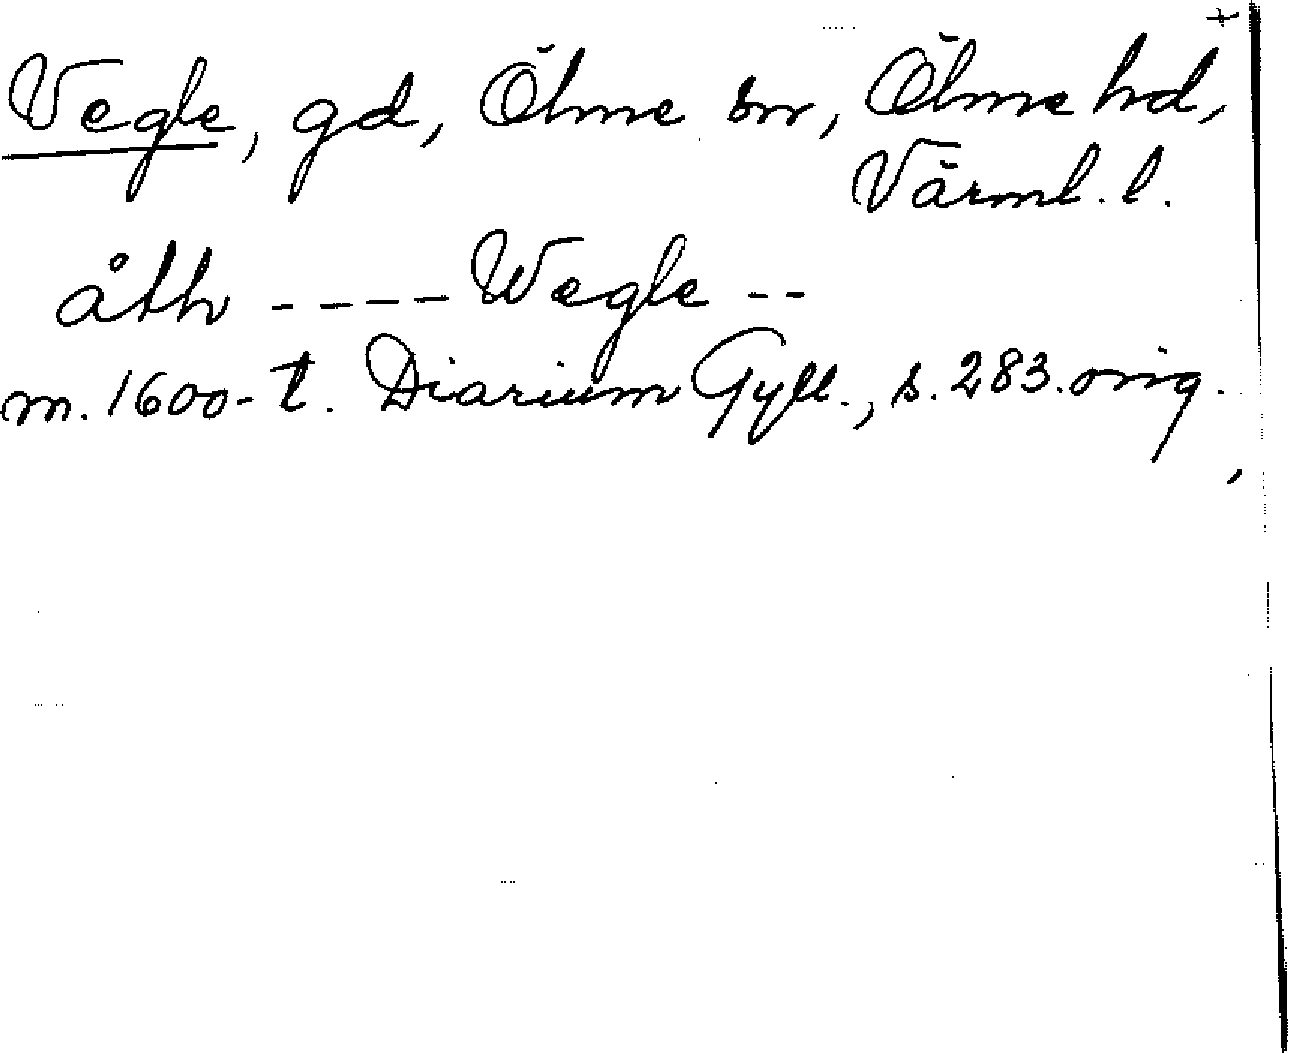 +
Vegle, gd, Ölme sn, Ölme hd,
Värml. l.
åth ---- Wegle --
m. 1600-t. Diarium Gyll., s. 283. orig.